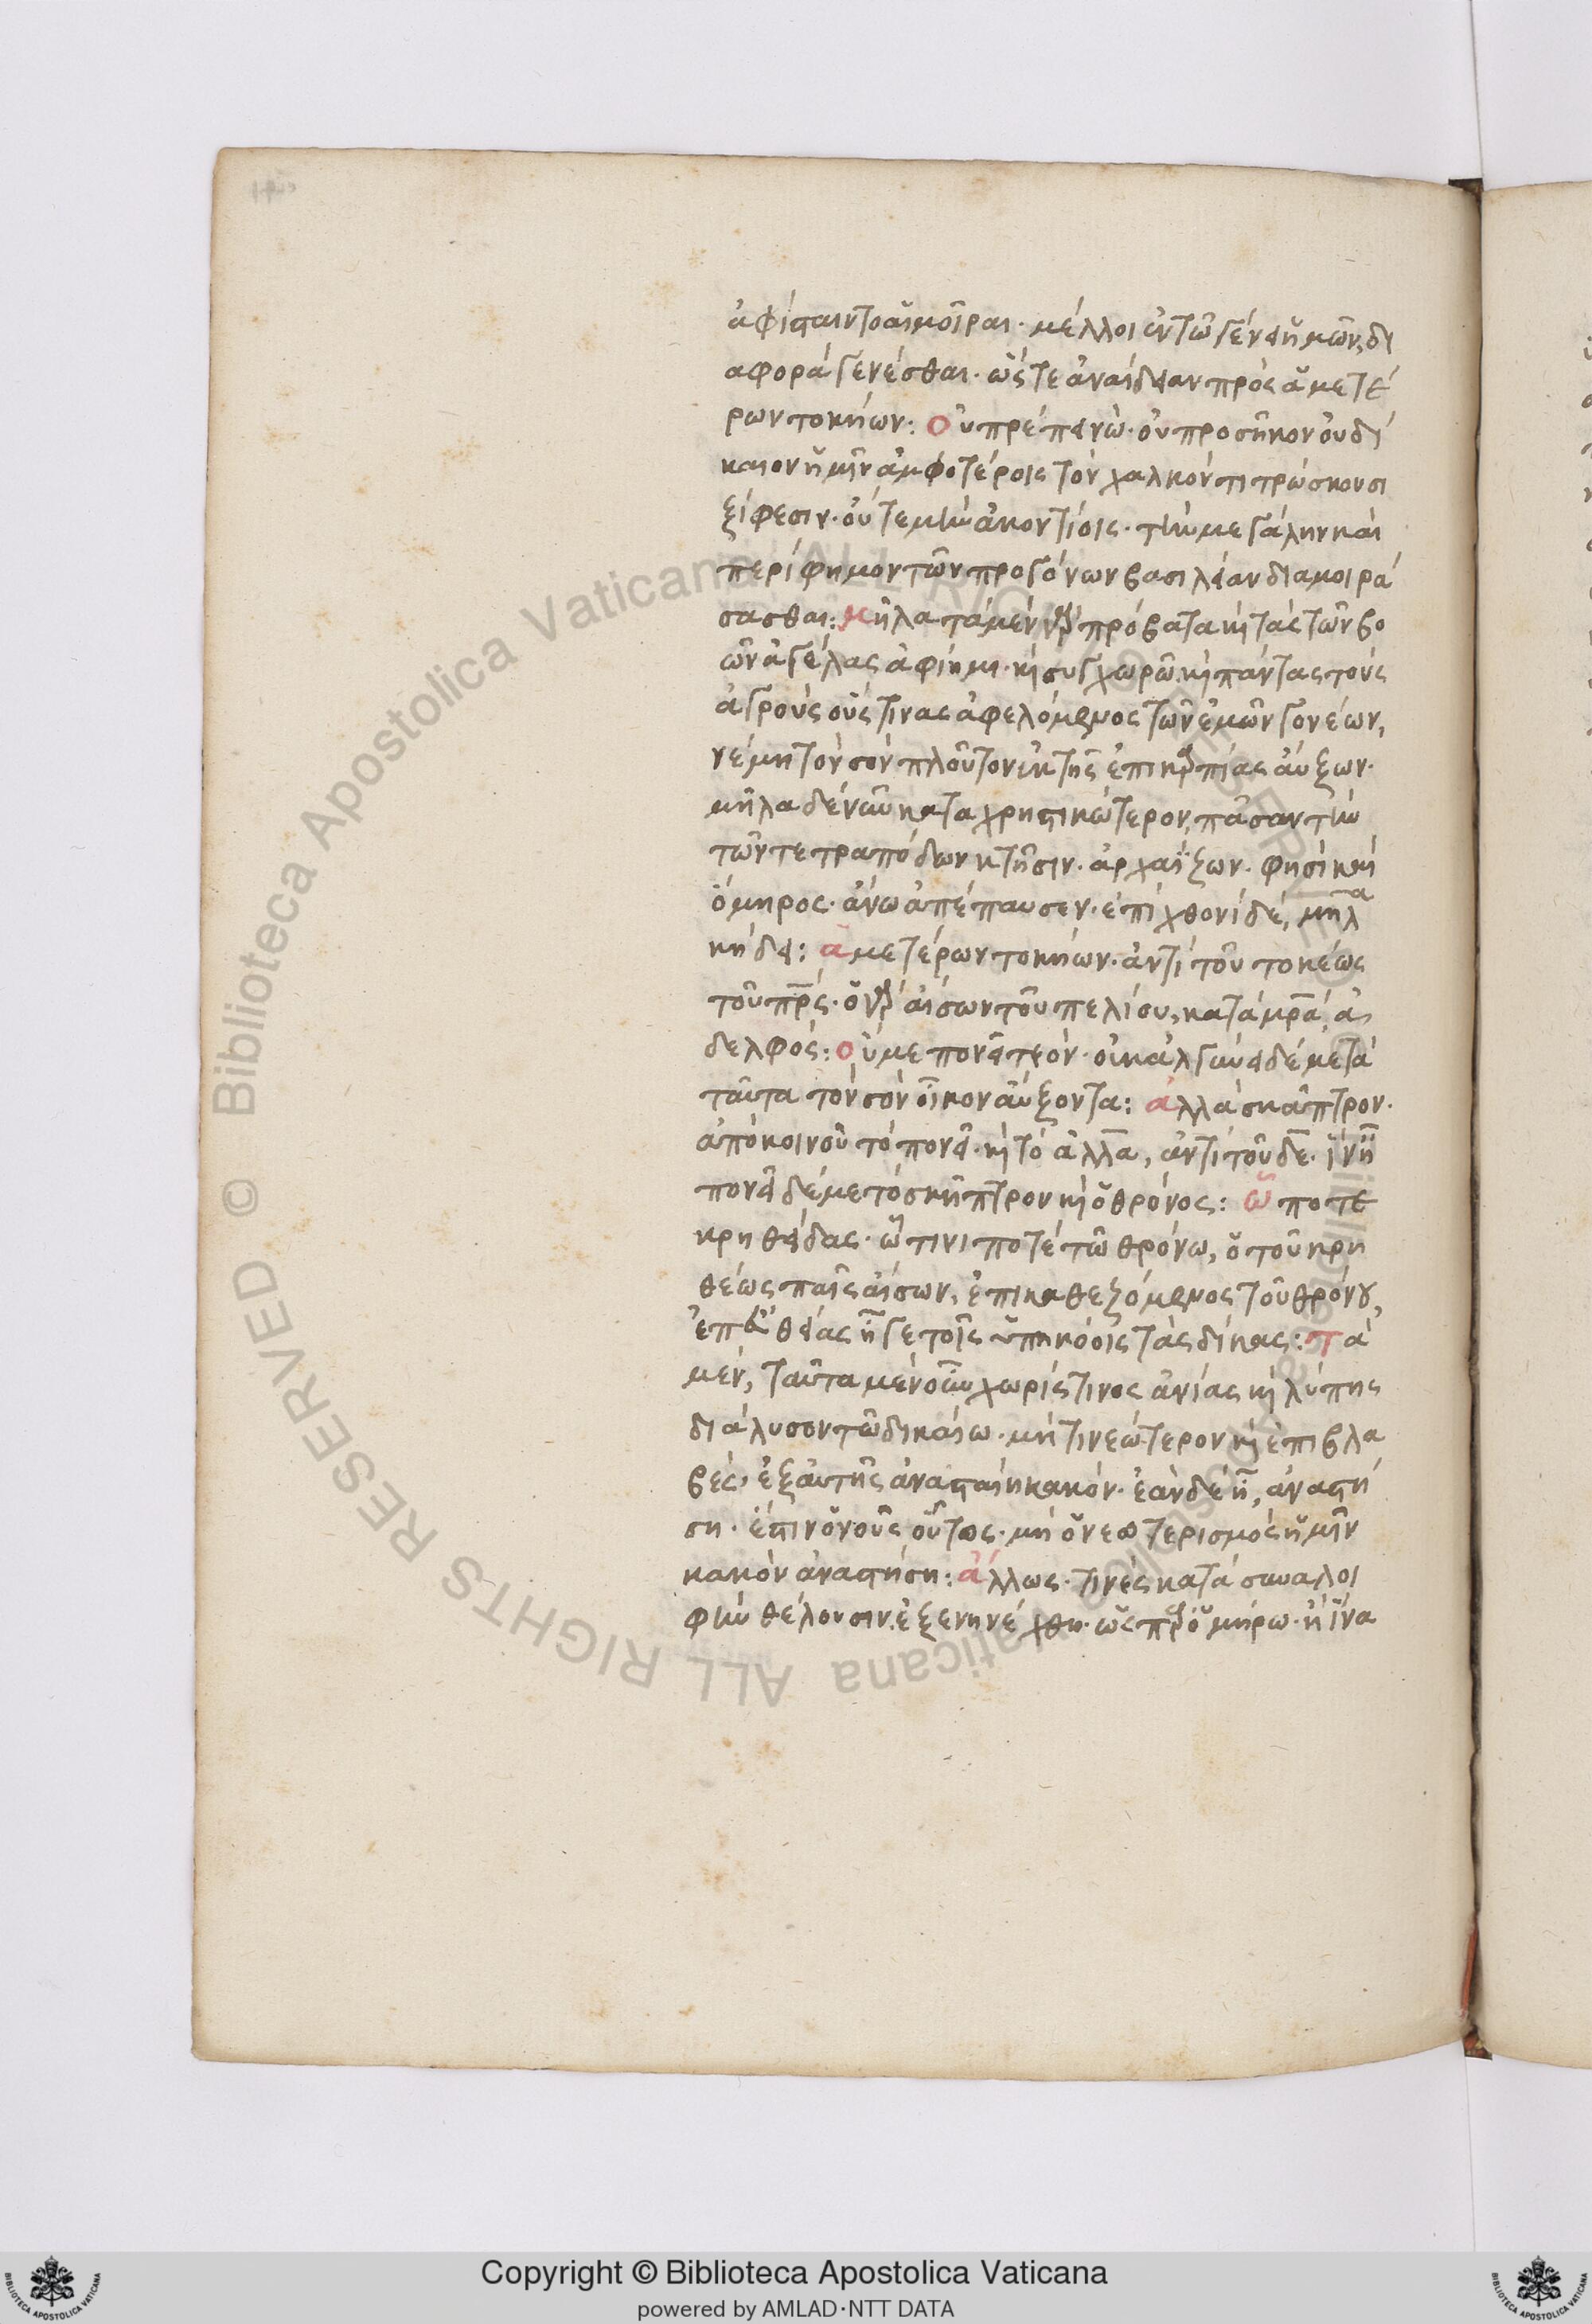 ἀφίσταιντο αἱ μοῖραι· μέλλοι ἐν τῶ γένει ἡμῶν, δι
αφορὰ γενέσθαι· ὥστε ἀναίδειαν πρὸς ἁμετέ
ρων τοκήων: Οὐ πρέπει νῶ· οὐ προσῆκον οὐ δί
καιον ἡμῖν ἀμφοτέροις τὸν χαλκὸν τιτρώσκουσι
ξίφεσιν· οὔτε μὴν ἀκοντίοις· τὴν μεγάλην καὶ
περίφημον τῶν προγόνων βασιλείαν διαμοιρά
σασθαι: μῆλα τὰ μὲν γὰρ πρόβατα κὶ τὰς τῶν βο
ῶν ἀγέλας ἀφίημι· κὶ συγχωρῶ κὶ πάντας τοὺς
ἀγροὺς οὕς τινας ἀφελόμενος τῶν ἐμῶν γονέων,
νέμη τὸν σὸν πλοῦτον ἐκ τῆς ἐπικαρπίας αὔξων·
μῆλα δὲ νῦν καταχρηστικώτερον, πᾶσαν τὴν
τῶν τετραπόδων κτῆσιν· ἀρχαΐζων· φησὶ καὶ
ὅμηρος· ἄνω ἀπέπαυσεν· ἐπὶ χθονὶ δέ, μῆλα
κήδει: ἁμετέρων τοκήων· ἀντὶ τοῦ τοκέως
τοῦ πρς· ὁ γὰρ αἴσων τοῦ πελίου, κατὰ μρα, ἀ
δελφός: οὔ με πονεῖ τεὸν· οὐκ ἀλγύνει δέ με τὰ
ταῦτα τὸν σὸν οἶκον αὔξοντα: ἀλλὰ σκᾶπτρον·
ἀπὸ κοινοῦ τὸ πονεῖ· κὶ τὸ ἀλλὰ, ἀντὶ τοῦ δὲ· ἵν ῆ
πονεῖ δέ με τὸ σκῆπτρον κὶ ὁ θρόνος: ὧ ποτε
κρηθείδας· ὧ τινι ποτὲ τῶ θρόνω, ὁ τοῦ κρη
θέως παῖς αἴσων, ἐπικαθεζόμενος τοῦ θρόνου,
ἐπ' εὐθείας ἦγε τοῖς ὑπηκόοις τὰς δίκας: τὰ
μὲν, ταῦτα μὲν οὖν χωρίς τινος ἀνίας κὶ λύπης
διάλυσον τῶ δικαίω· μή τι νεώτερον κὶ ἐπιβλα
βὲς, ἐξ αὐτῆς ἀνασταίη κακόν· ἐὰν δὲ ῆ, ἀναστή
ση· ἔστιν ὁ νοῦς οὕτως· μὴ ὁ νεωτερισμὸς ἡμῖν
κακὸν ἀναστήση: ἄλλως· τινὲς κατὰ συναλοι
φὴν θέλουσιν ἐξενηνέχθαι· ὡς παρ' ὁμήρω· ἢ ἵνα